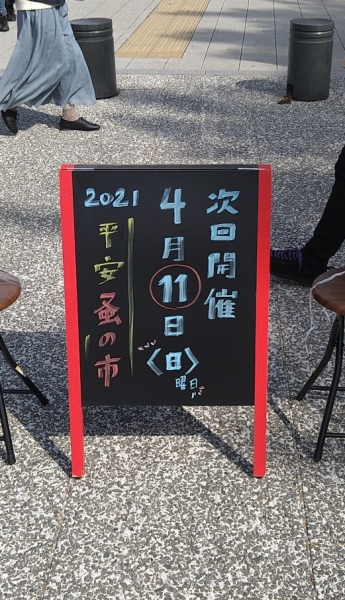 次回開催
4月11日
〈日〉
曜日
2021
平安蚤の市